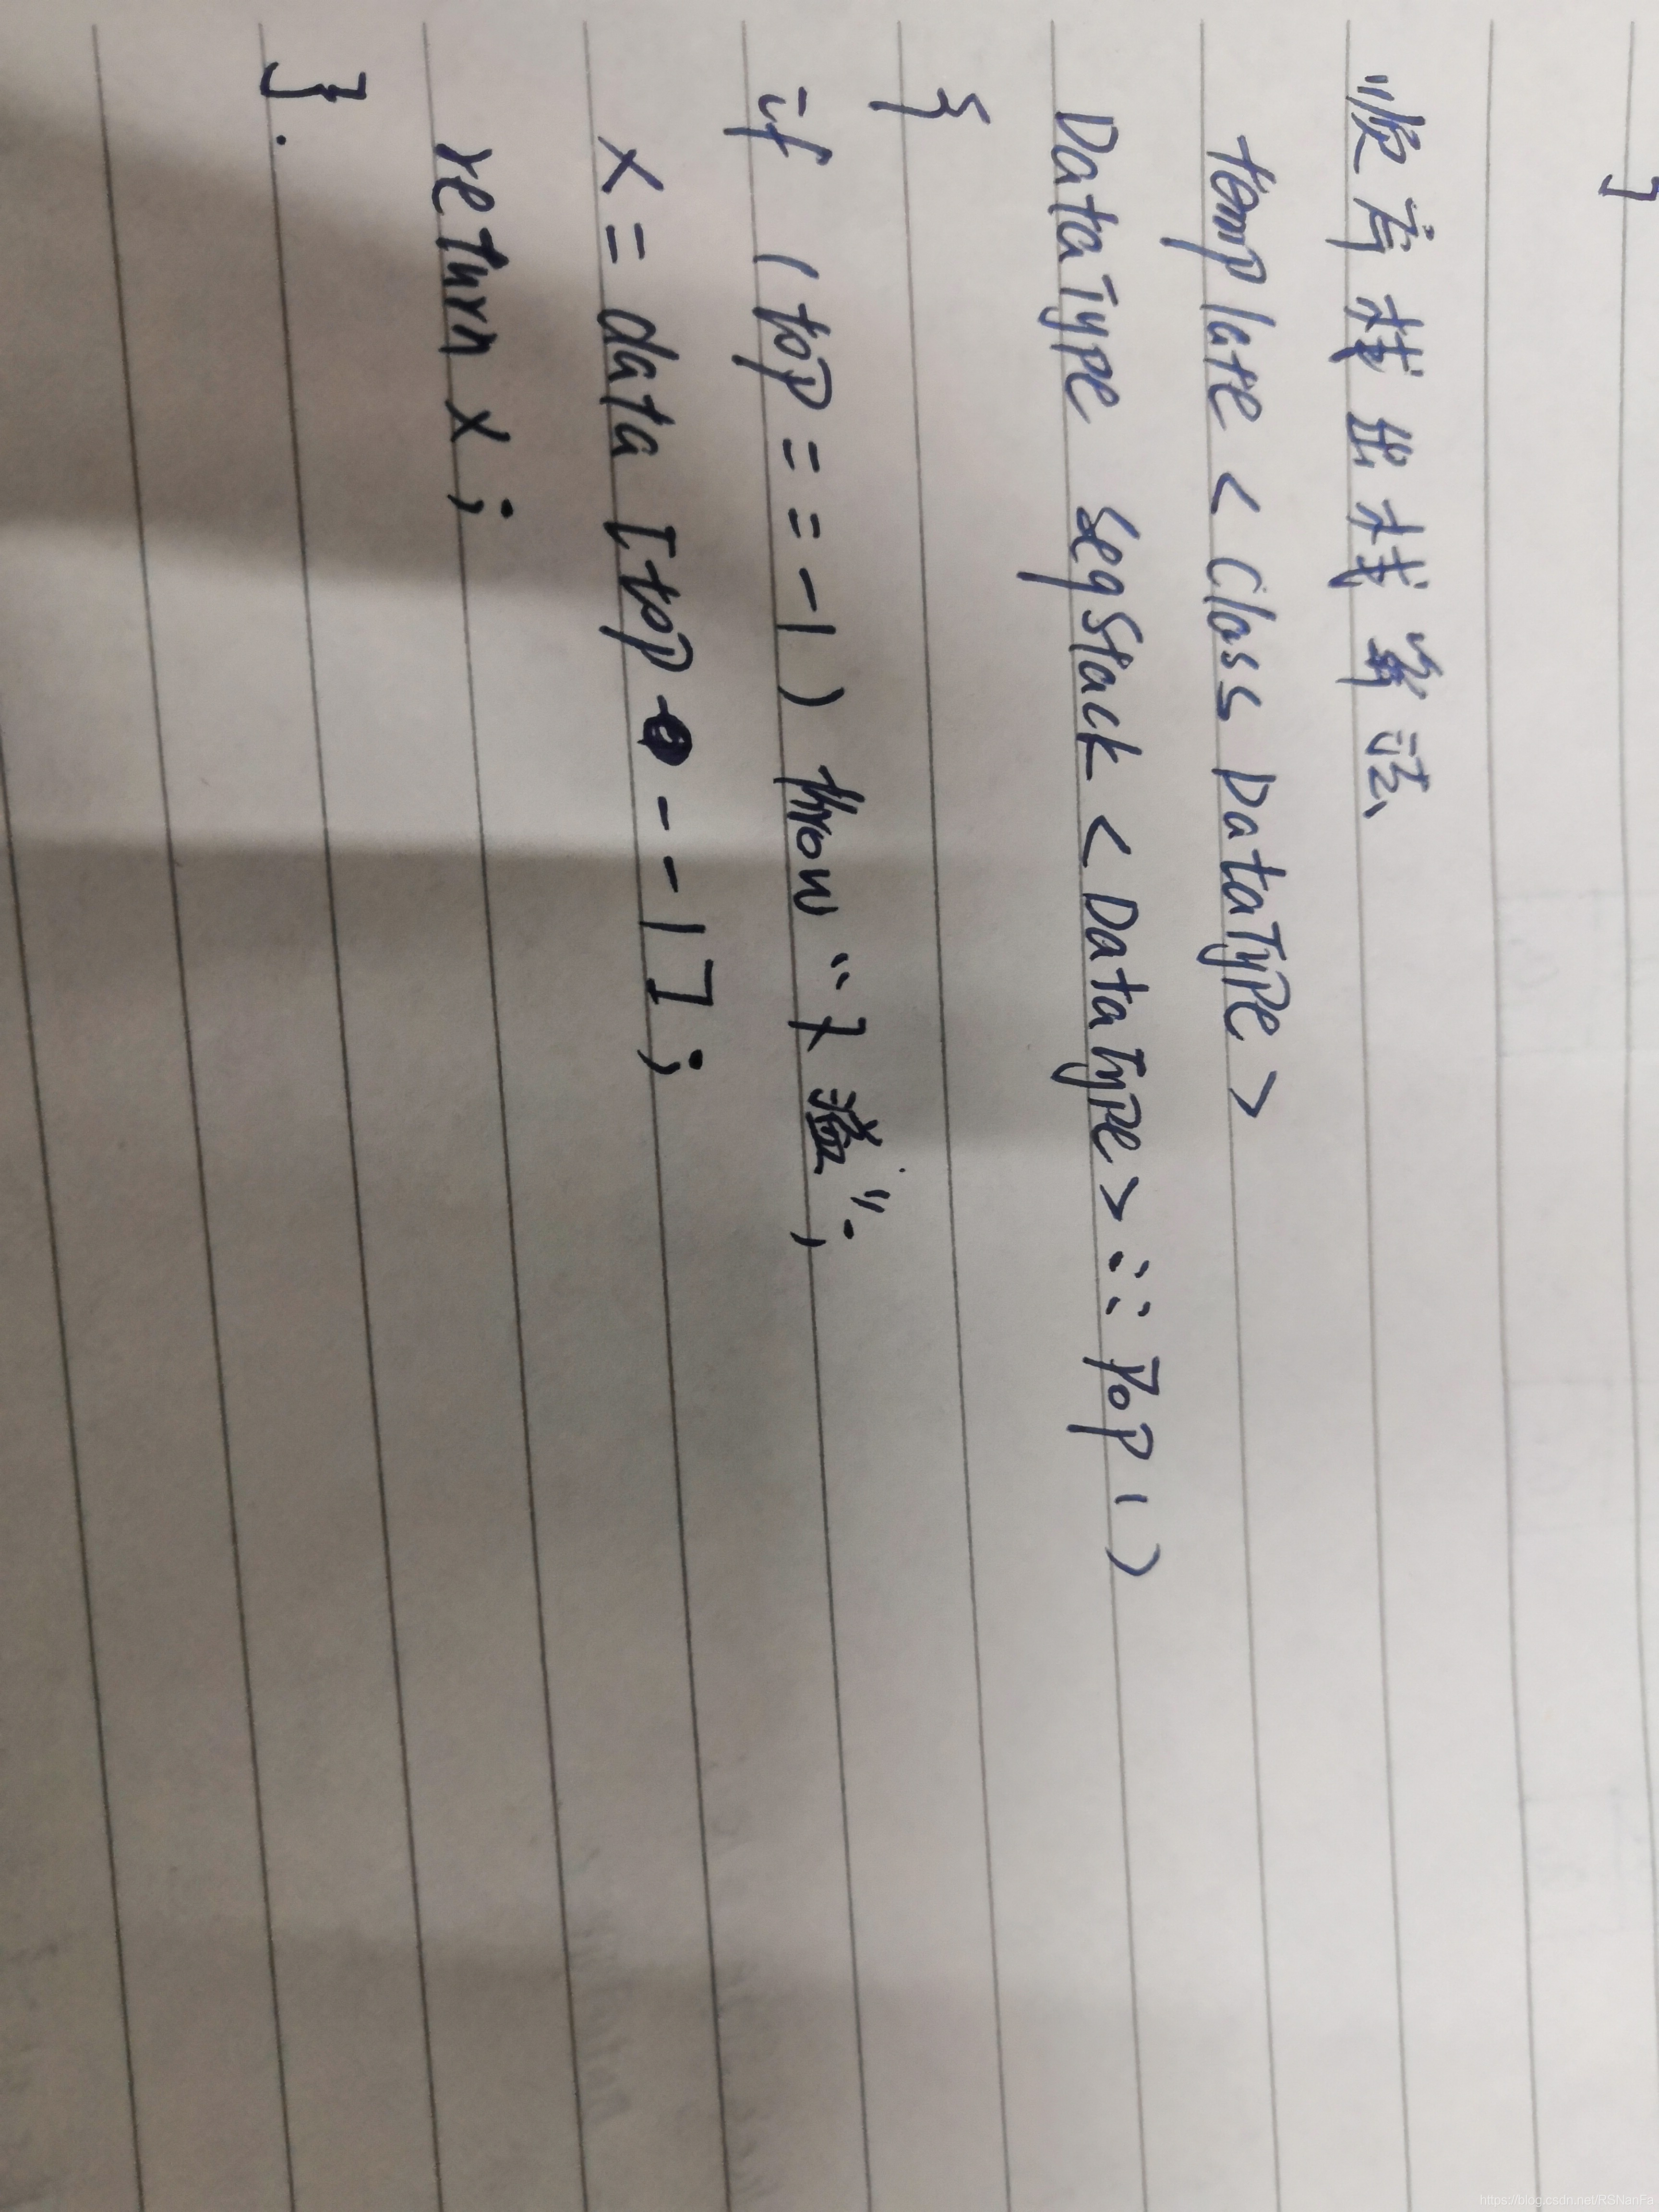 }
顺序栈出栈算法
template < class DataType >
DataType SeqStack < DataType > :: Pop ()
{
if (top == -1) throw “下溢”;
x = data [top --1];
return x;
}.
https://blog.csdn.net/RSNanFa